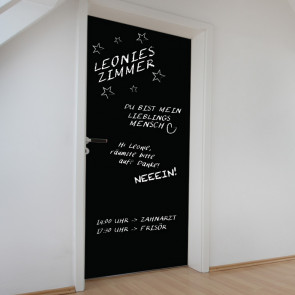 LEONIES
ZIMMER
DU BIST MEIN
LIEBLINGS
MENSCH
Hi Leonie,
räumste bitte
auf? Danke!
NEEEIN!
14:00 UHR -> ZAHNARZT
17:30 UHR -> FRISÖR